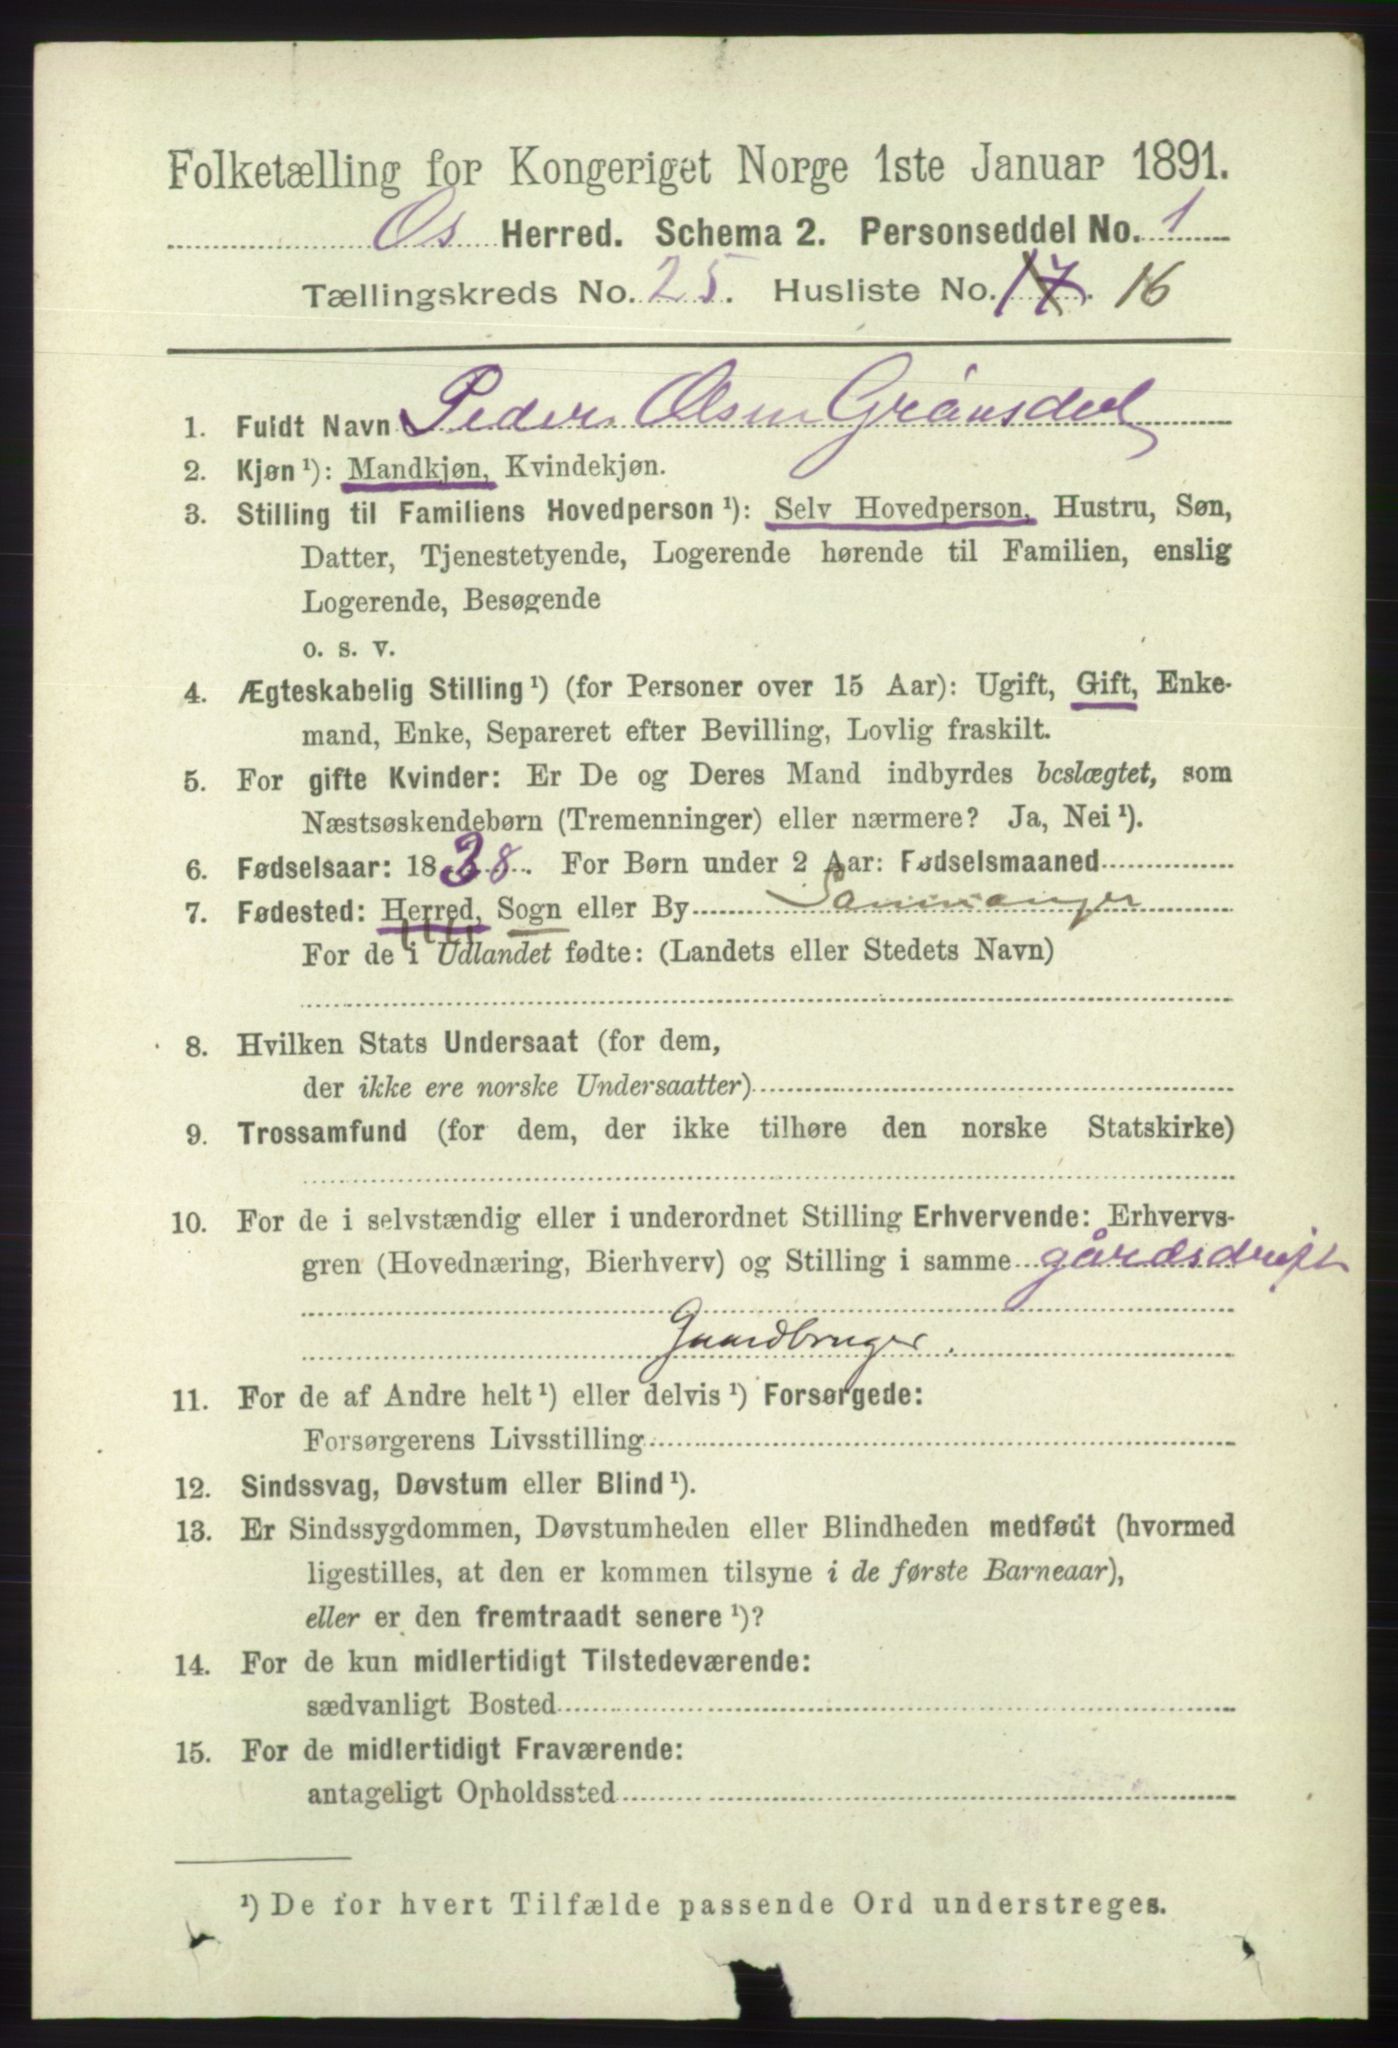 Folketælling for Kongeriget Norge 1ste Januar 1891.
Os Herred. Schema 2. Personseddel No. 1
Tællingskreds No. 25. Husliste No. 17. 16
1. Fuldt Navn Peder Olsen
2. Kjøn ¹): Mandkjøn, Kvindekjøn.
3. Stilling til Familiens Hovedperson ¹): Selv Hovedperson, Hustru, Søn,
Datter, Tjenestetyende, Logerende hørende til Familien, enslig
Logerende, Besøgende
o. s. v.
4. Ægteskabelig Stilling ¹) (for Personer over 15 Aar): Ugift, Gift, Enke-
mand, Enke, Separeret efter Bevilling, Lovlig fraskilt.
5. For gifte Kvinder: Er De og Deres Mand indbyrdes beslægtet, som
Næstsøskendebørn (Tremenninger) eller nærmere? Ja, Nei ¹).
6. Fødselsaar: 1838. For Børn under 2 Aar: Fødselsmaaned
7. Fødested: Herred, Sogn eller By Samnanger
For de i Udlandet fødte: (Landets eller Stedets Navn)
8. Hvilken Stats Undersaat (for dem,
der ikke ere norske Undersaatter)
9. Trossamfund (for dem, der ikke tilhøre den norske Statskirke)
10. For de i selvstændig eller i underordnet Stilling Erhvervende: Erhvervs-
gren (Hovednæring, Bierhverv) og Stilling i samme gårdsdrift
Gaardbruger.
11. For de af Andre helt ¹) eller delvis ¹) Forsørgede:
Forsørgerens Livsstilling
12. Sindssvag, Døvstum eller Blind ¹).
13. Er Sindssygdommen, Døvstumheden eller Blindheden medfødt (hvormed
ligestilles, at den er kommen tilsyne i de første Barneaar),
eller er den fremtraadt senere ¹)?
14. For de kun midlertidigt Tilstedeværende:
sædvanligt Bosted
15. For de midlertidigt Fraværende:
antageligt Opholdssted
¹) De for hvert Tilfælde passende Ord understreges.